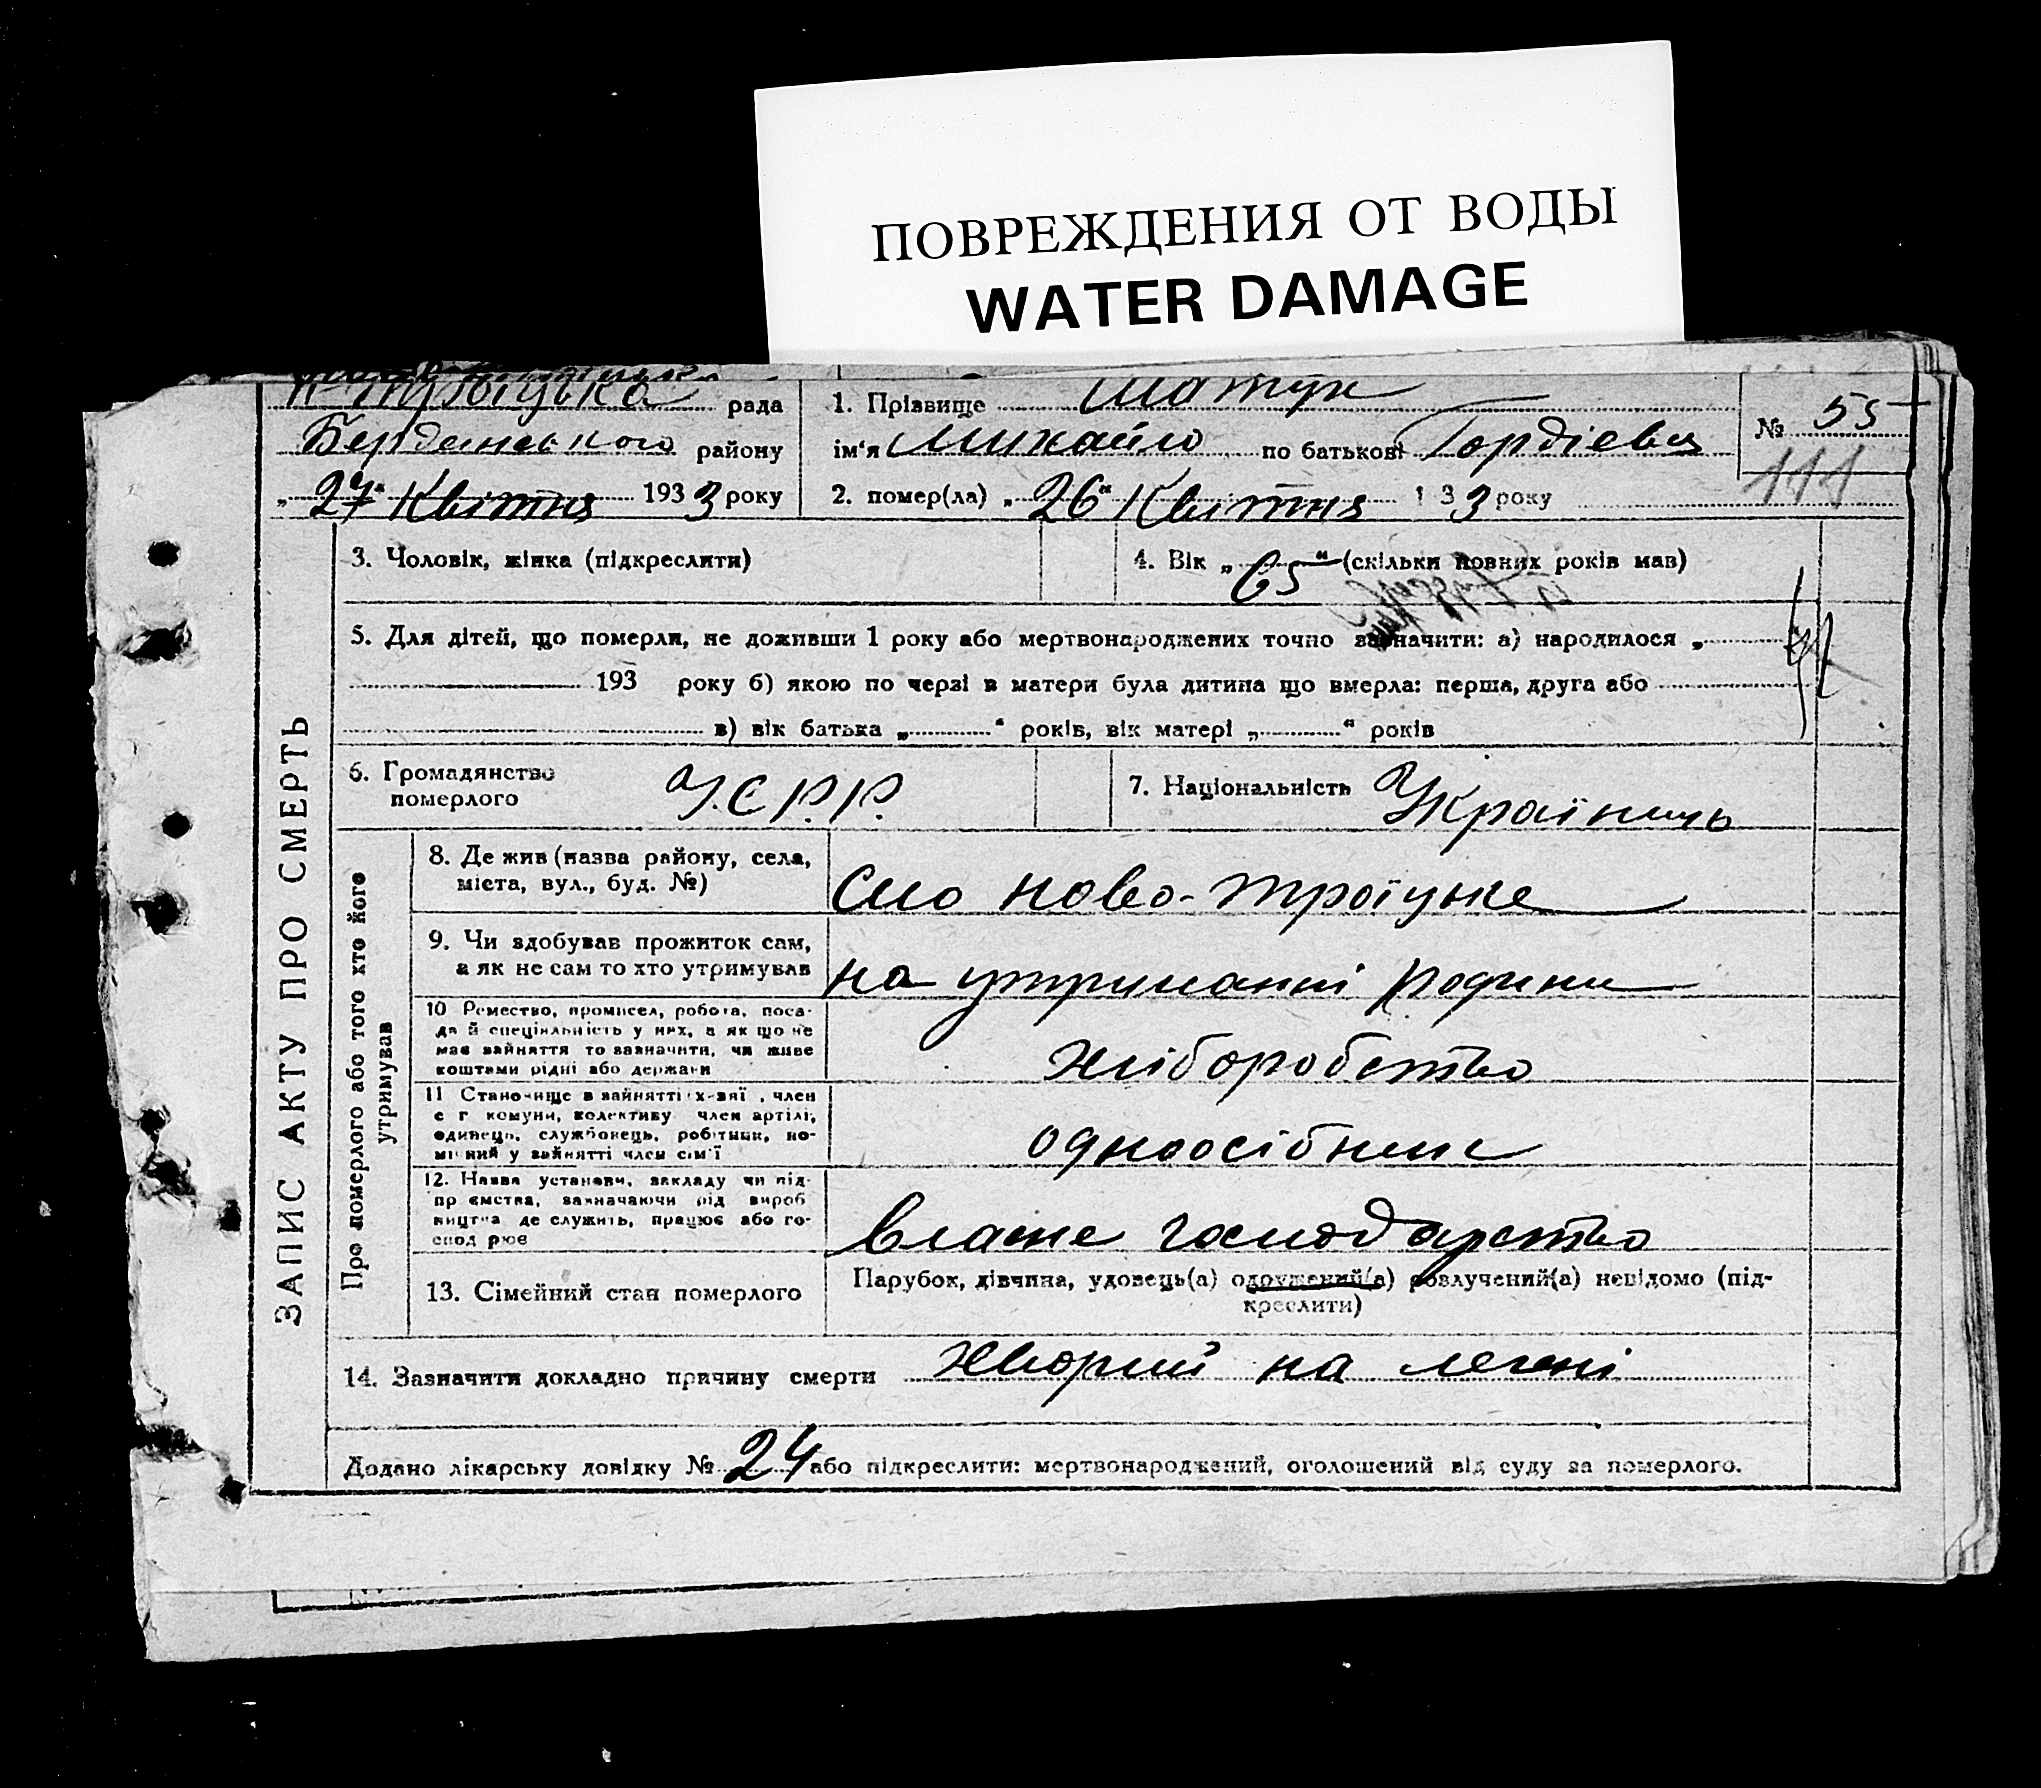 ПОВРЕЖДЕНИЯ ОТ ВОДЫ
WATER DAMAGE
Н-Троїцька рада
Бердянського району
„27“ Квітня 1933 року
1. Прізвище Шатун
ім'я Михайло по батькові Гордієвич
2. помер(ла) „26“ Квітня 1 33 року
№ 55
111
ЗАПИС АКТУ ПРО СМЕРТЬ
3. Чоловік, жінка (підкреслити)
4. Вік „65“ (скільки повних років мав)
5. Для дітей, що померли, не доживши 1 року або мертвонароджених точно зазначити: а) народилося „
193 року б) якою по черзі в матери була дитина що вмерла: перша, друга або
в) вік батька „ “ років, вік матері „ “ років
6. Громадянство
померлого
У.С.Р.Р.
7. Національність Українець
Про померлого або того кто його
утримував
8. Де жив (назва району, села,
міста, вул., буд. №)
Село Ново-Троїцьке
9. Чи здобував прожиток сам,
а як не сам то хто утримував
на утриманні родини
10 Ремество, промисел, робота, поса-
да й спеціяльність у них, а як що не
має зайняття то зазначити, чи живе
коштами рідні або держави
хліборобство
11 Становище в зайнятті х-зяї , член
с г комуни, колективу член артілі,
одинець, службовець, робітник, по-
мічний у зайнятті член сім'ї
одноосібник
12. Назва установи, закладу чи під-
пр ємства, зазначаючи рід вироб
ництва де служить, працює або го-
спод рює
власне господарство
13. Сімейний стан померлого
Парубок, дівчина, удовець(а) одружений(а) розлучений(а) невідомо (під-
креслити)
14. Зазначити докладно причину смерти Хворий на легені
Додано лікарську довідку № 24 або підкреслити: мертвонароджений, оголошений від суду за померлого.